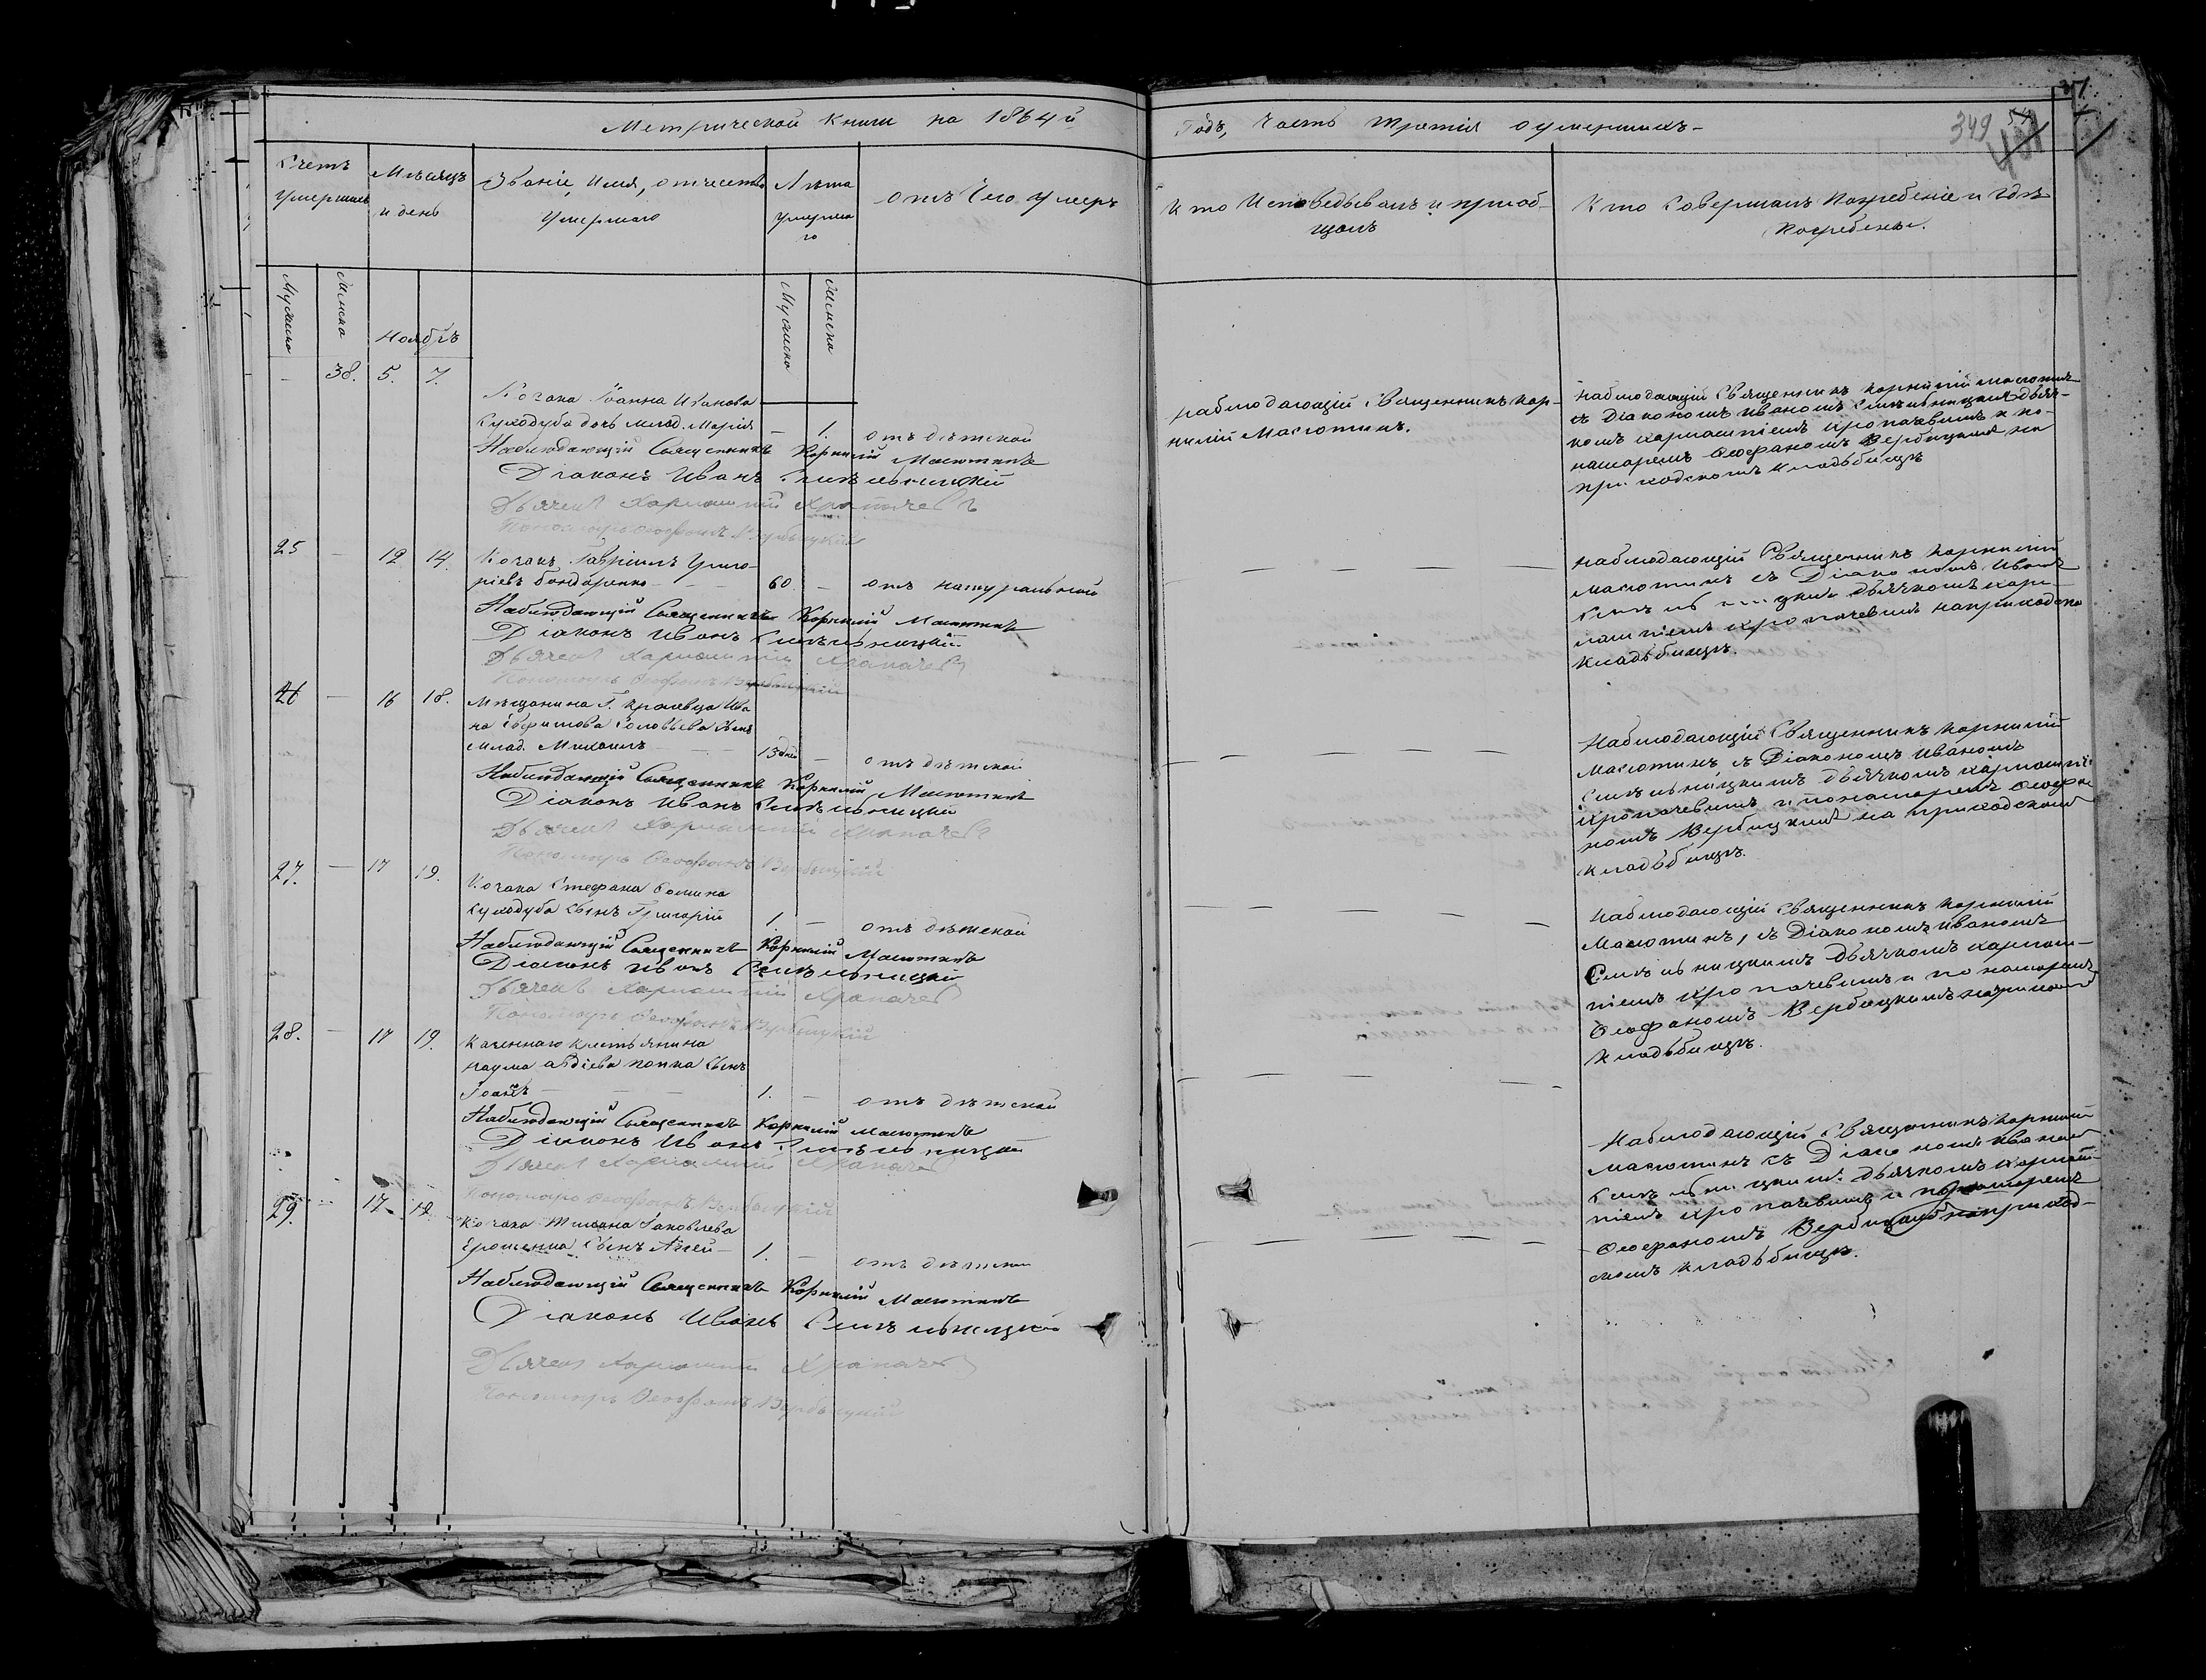 Метрической книги на 1864й
Годъ, Часть третія о умершихъ
349
Счетъ умершихъ
Мѣсяцъ и день
Званіе, Имя, отчество умершаго
Лѣта умершаго
отъ Чего умеръ
Кто Исповѣдывалъ и пріобщалъ
Кто Совершалъ Погребеніе и гдѣ Погребены.
Мужска
Женска
Ноябрь
Мужска
Женска
– 38. 5. 7.
Козака Іоанна Иванова
Сукодуба дочь млад. Марія – 1. отъ дѣтской
Наблюдающій Священникъ Корнилій Масютинъ
Діаконъ Иванъ
Дьячекъ Харлампій Храпачевъ
Пономарь Ѳеофанъ Вербицкій
наблюдающій Священникъ Кор-
нилій Масютинъ.
наблюдающій Священникъ Корнилій Масютинъ
съ Діакономъ Иваномъ дьяч-
комъ Харлампіемъ Хропачевымъ и по-
намаремъ Ѳеофаномъ Вербицкимъ на
приходскомъ кладьбищѣ
25 – 12 14. Козакъ Гавріилъ Григо-
ріевъ Бондаренко 60 – отъ натуральной
Наблюдающій Священникъ Корнилій Масютинъ
Діаконъ Иванъ
Дьячекъ Харлампій Храпачевъ
Пономарь Ѳеофанъ Вербицкій
наблюдающій Священникъ Корнилій
Масютинъ съ Діакономъ Иваномъ
дьячкомъ Харлам-
піемъ Хропачевымъ на приходско
кладьбищѣ.
26 – 16 18. Мѣщанина Г. Кролевца Ива
на Ефимова Соловьева сынъ
млад. Михаилъ 13 дней – отъ дѣтской
Наблюдающій Священникъ Корнилій Масютинъ
Діаконъ Иванъ
Дьячекъ Харлампій Храпачевъ
Пономарь Ѳеофанъ Вербицкій
Наблюдающій Священникъ Корнилій
Масютинъ съ Діакономъ Иваномъ
дьячкомъ Харлампіе
Хропачевымъ и понамаремъ Ѳеофа
номъ Вербицкимъ на приходскомъ
кладьбищѣ.
27. – 17 19. Козака Стефана Фомина
Сукодуба сынъ Григорій 1. – отъ дѣтской
Наблюдающій Священникъ Корнилій Масютинъ
Діаконъ Иванъ
Дьячекъ Харлампій Храпачевъ
Пономарь Ѳеофанъ Вербицкій
Наблюдающій Священникъ Корнилій
Масютинъ, съ Діакономъ Иваномъ
дьячкомъ Харлам-
піемъ Хропачевымъ и понамаремъ
Ѳеофаномъ Вербицкимъ
кладьбищѣ.
28. – 17 19. Казеннаго крестьянина
Наума Авдіева Попка сынъ
Іоаннъ 1. – отъ дѣтской
Наблюдающій Священникъ Корнилій Масютинъ
Діаконъ Иванъ
Дьячекъ Харлампій Храпачевъ
Пономарь Ѳеофанъ Вербицкій
Наблюдающій Священникъ Корнилій
Масютинъ съ Діакономъ Иваномъ
дьячкомъ Харлам-
піемъ Хропачевымъ и понамаремъ
Ѳеофаномъ Вербицкимъ на приход-
скомъ кладьбищѣ.
29. – 17. Козака Яковлева
Ерошенка сынъ 1. – отъ дѣтской
Наблюдающій Священникъ Корнилій Масютинъ
Діаконъ Иванъ
Дьячекъ Харлампій Храпачевъ
Пономарь Ѳеофанъ Вербицкій